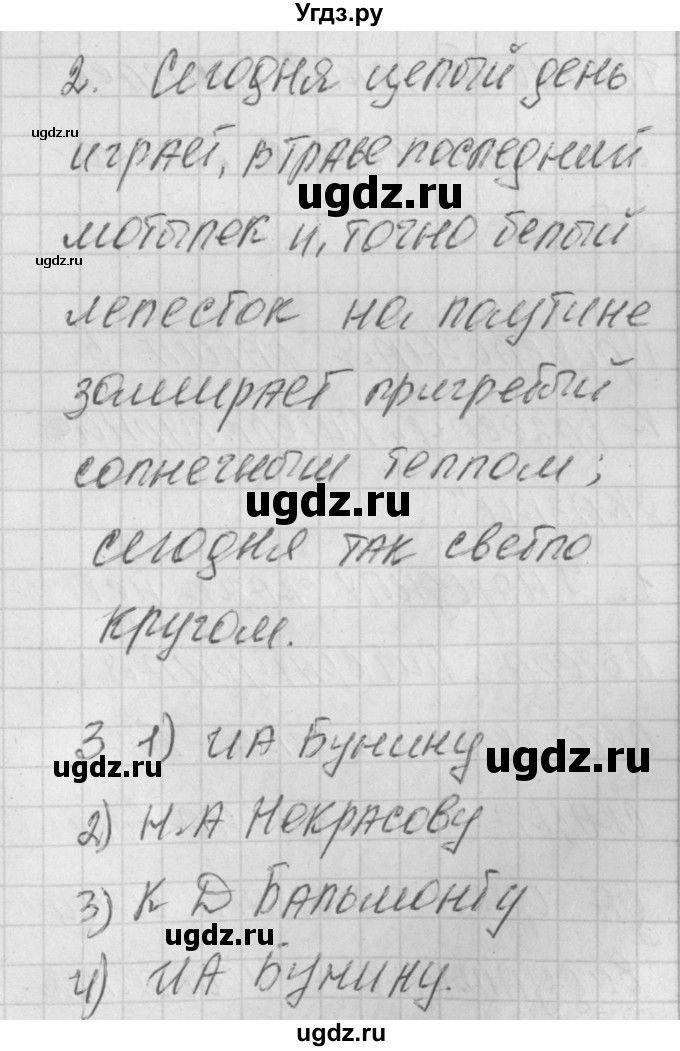 Угдз.ру
2. Сегодня целый день
играет, в траве последний
мотылек и, точно белый
лепесток на паутине
замирает пригретый
солнечным теплом;
сегодня так светло
кругом.
3 1) И А Бунину
2) Н.А Некрасову
3) К Д Бальмонту
4) И А Бунину.
ugdz.ru
ugdz.ru
ugdz.ru
ugdz.ru
ugdz.ru
ugdz.ru
ugdz.ru
ugdz.ru